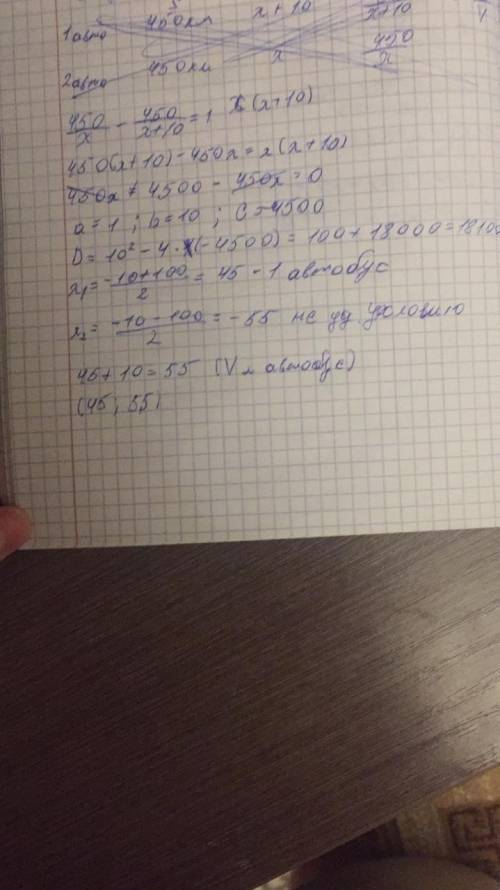 S V
1 авто 450 км x + 10 x+10 4
2 авто 450 км x 450/x
450/x - 450/(x+10) = 1 x(x+10)
450(x+10) - 450x = x(x+10)
450x + 4500 - 450x = 0
a = 1 ; b = 10 ; C = 4500
D = 10² - 4 · (-4500) = 100 + 18000 = 18100
x₁ = (-10+100)/2 = 45 - 1 автобус
x₂ = (-10-100)/2 = -55 не уд. условию
45 + 10 = 55 (V м автобус)
(45 ; 55)